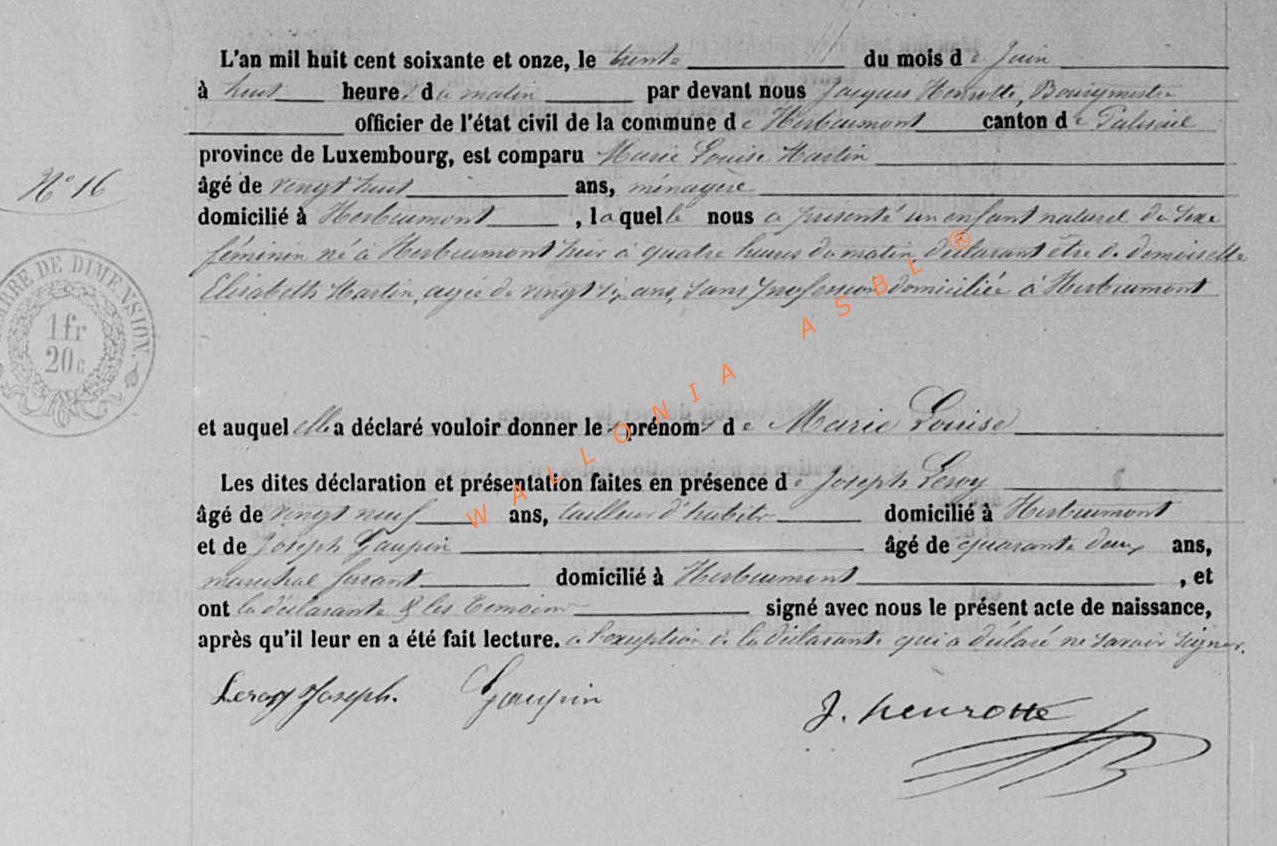 L'an mil huit cent soixante et onze, le trente du mois de Juin
à huit heures du matin par devant nous Jacques Henrotte, Bourgmestre
officier de l'état civil de la commune de Herbeumont canton de Paliseul
province de Luxembourg, est comparu Marie Louise Martin
N° 16
âgé de vingt huit ans, ménagère
domicilié à Herbeumont , laquelle nous a présenté un enfant naturel du sexe
féminin né à Herbeumont hier à quatre heures du matin, déclarant être de demoiselle
Elisabeth Martin, agée de vingt six ans, sans profession domiciliée à Herbeumont
TIMBRE DE DIMENSION.
1 fr
20 c
WALLONIA ASBL ®
et auquel elle a déclaré vouloir donner les prénoms de Marie Louise
Les dites déclaration et présentation faites en présence de Joseph Leroy
âgé de vingt neuf ans, tailleur d'habits domicilié à Herbeumont
et de Joseph Gaupin âgé de quarante deux ans,
maréchal ferrant domicilié à Herbeumont , et
ont la déclarante & les temoins signé avec nous le présent acte de naissance,
après qu'il leur en a été fait lecture. a l'exception de la déclarante qui a déclaré ne savoir signer.
Leroy Joseph. Gaupin J. Henrotte